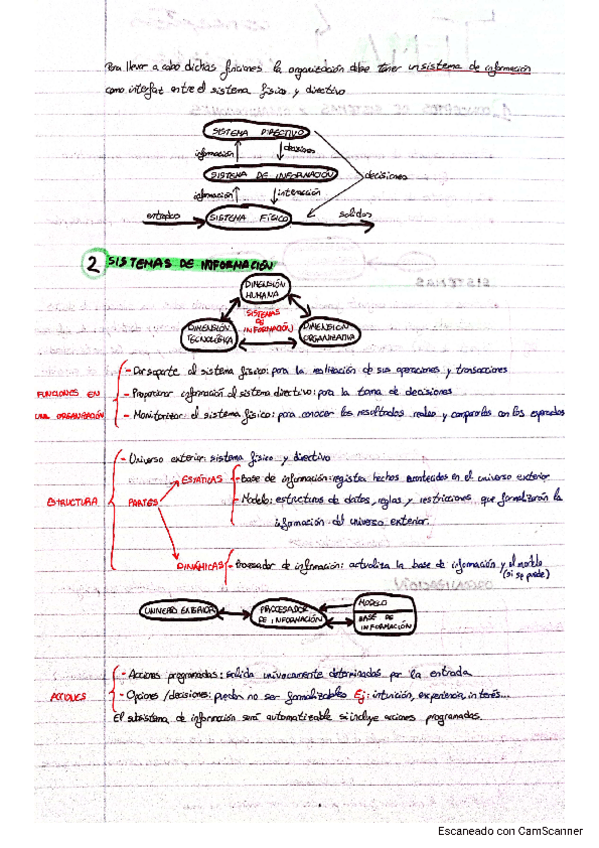 Para llevar a cabo dichas funciones la organización debe tener un sistema de información
como interfaz entre el sistema físico y directivo
SISTEMA DIRECTIVO
información decisiones
SISTEMA DE INFORMACIÓN decisiones
información interacción
entradas SISTEMA FÍSICO salidas
2 SISTEMAS DE INFORMACIÓN
DIMENSIÓN
HUMANA
SISTEMAS
DE
INFORMACIÓN
DIMENSIÓN
TECNOLÓGICA
DIMENSION
ORGANIZATIVA
FUNCIONES EN
UNA ORGANIZACIÓN
- Dar soporte al sistema físico: para la realización de sus operaciones y transacciones
- Proporcionar información al sistema directivo: para la toma de decisiones
- Monitorizar el sistema físico: para conocer los resultados reales y compararlos con los esperados
ESTRUCTURA
- Universo exterior: sistema físico y directivo
PARTES
ESTÁTICAS
- Base de información: registra hechos acontecidos en el universo exterior
- Modelo: estructuras de datos, reglas y restricciones que formalizarán la
información del universo exterior.
DINÁMICAS
- Procesador de información: actualiza la base de información y el modelo
(si se puede)
UNIVERSO EXTERIOR
PROCESADOR
DE INFORMACIÓN
MODELO
BASE DE
INFORMACIÓN
ACCIONES
- Acciones programadas: salida unívocamente determinadas por la entrada
- Opciones / decisiones: pueden no ser formalizables Ej: intuición, experiencia, interés...
El subsistema de información será automatizable si incluye acciones programadas.
Escaneado con CamScanner